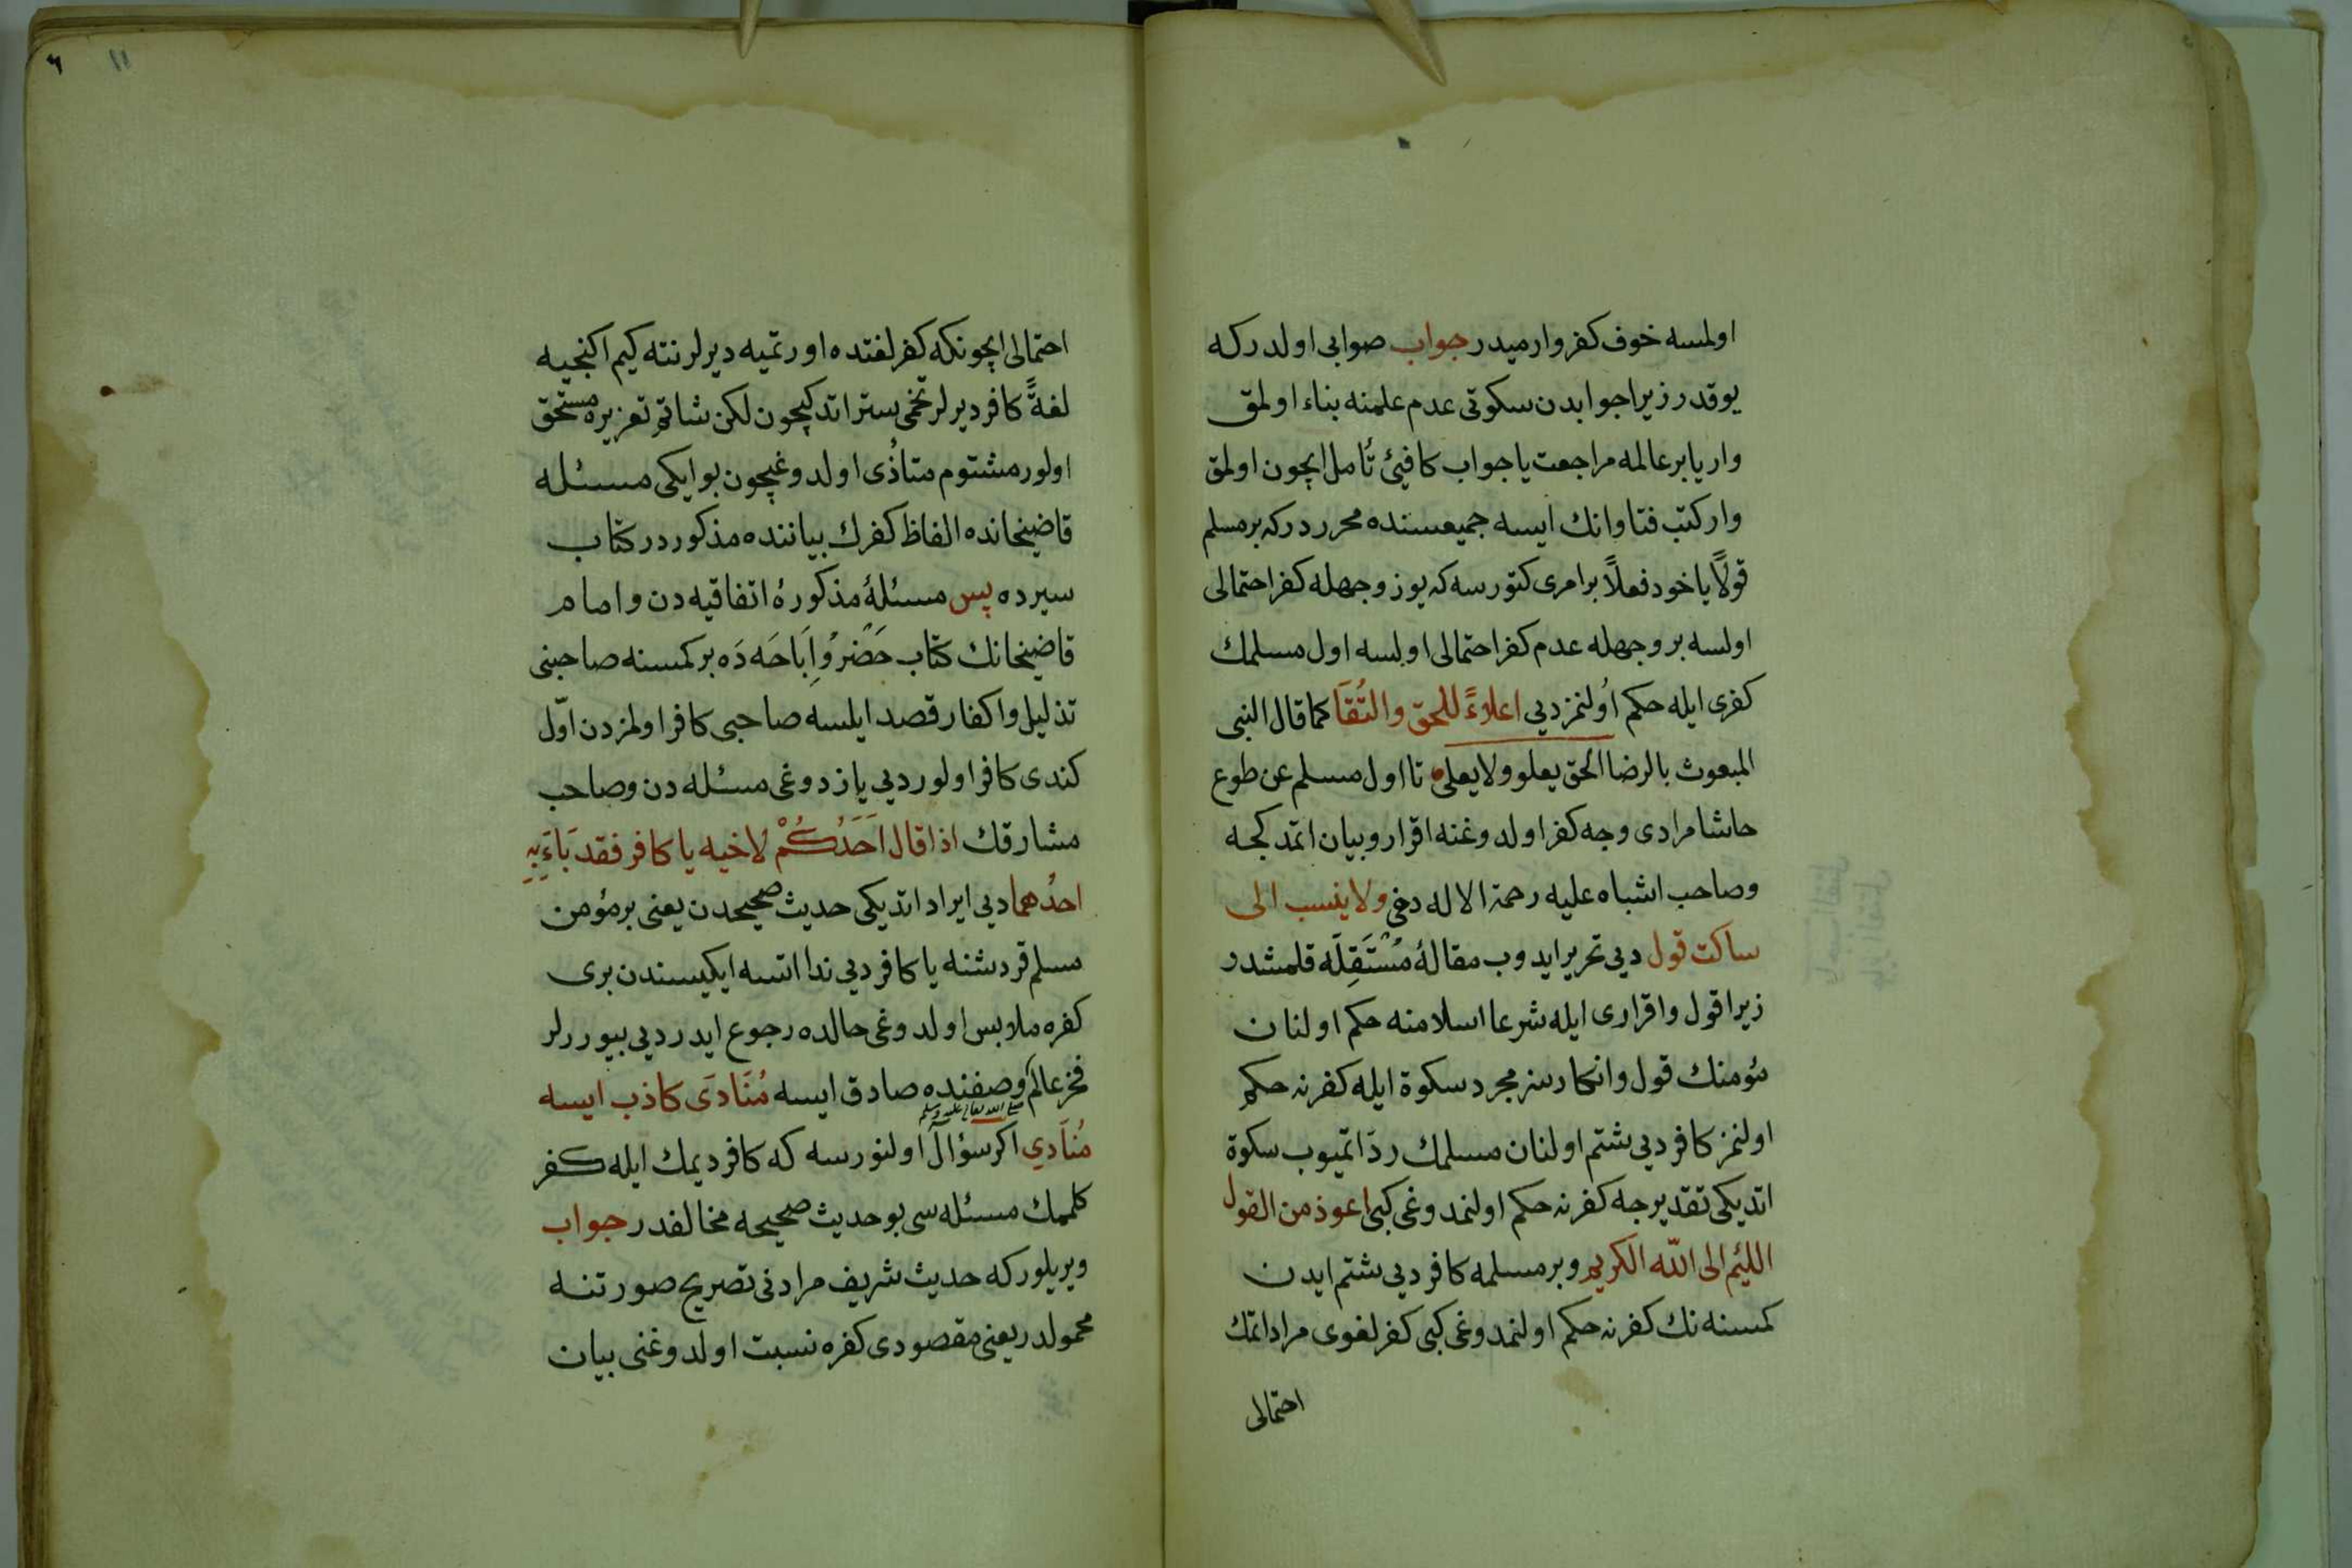 اولسه خوف كفر وارميدر جواب صوابی اولدركه
يوقدر زيرا جوابدن سكوتی عدم علمنه بناء اولمق
وار يا بر عالمه مراجعت يا جواب كافيئ تأمل ايچون اولمق
وار كتب فتاوانك ايسه جميعسنده محرردركه بر مسلم
قولاً ياخود فعلاً بر امری كتورسه كه يوز وجهله كفر احتمالی
اولسه بر وجهله عدم كفر احتمالی اولسه اول مسلمك
كفری ايله حكم اُولنمز ديی اعلاءً للحق والتُقَا كما قال النبی
المبعوث بالرضا الحق يعلو ولا يعلی تا اول مسلم عن طوع
حاشا مرادی وجه كفر اولدوغنه اقرار وبيان اتمدكجه
وصاحب اشباه عليه رحمة الاله دخی ولا ينسب الی
ساكت قول ديی تحرير ايدوب مقالهٔ مُسْتَقِلَه قلمشدر
زيرا قول واقراری ايله شرعا اسلامنه حكم اولنان
مؤمنك قول وانكارسز مجرد سكوة ايله كفرنه حكم
اولنمز كافر ديی شتم اولنان مسلمك ردّ اتميوب سكوة
اتديكی تقديرجه كفرنه حكم اولنمدوغی كبی اعوذ من القول
اللئيم الی الله الكريم وبر مسلمه كافر ديی شتم ايدن
كمسنه نك كفرنه حكم اولنمدوغی كبی كفر لغوی مراد اتمك
احتمالی
٦ ١١
احتمالی ايچونكه كفر لغتده اورتميه ديرلر نته كيم اكنجيه
لغةً كافر ديرلر تخمی ستر اتدكيچون لكن شاتم تعزيره مستحق
اولور مشتوم متأذی اولدوغيچون بو ايكی مسئله
قاضيخانده الفاظ كفرك بياننده مذكوردر كتاب
سيرده پس مسئلهٔ مذكورهٔ اتفاقيه دن و امام
قاضيخانك كتاب حَضْرُ وُاِبَاحَه دَه بر كمسنه صاحبنی
تذليل واكفار قصد ايلسه صاحبی كافر اولمزدن اوّل
كندی كافر اولور ديی يازدوغی مسئله دن وصاحب
مشارقك اذا قال اَحَدُكُمْ لاخيه يا كافر فقد بَاءَ بِهِ
احدُهما ديی ايراد اتديكی حديث صحيحدن يعنی بر مؤمن
مسلم قردشنه يا كافر ديی ندا اتسه ايكيسندن بری
كفره ملابس اولدوغی حالده رجوع ايدر ديی بيوررلر
فخر عالم صلی الله تعالی عليه وسلم وصفنده صادق ايسه مُنَادَی كاذب ايسه
مُنَادِي اكر سؤال اولنورسه كه كافر ديمك ايله كفر
كلمك مسئله سی بو حديث صحيحه مخالفدر جواب
ويريلور كه حديث شريف مرادنی تصريح صورتنه
محمولدر يعنی مقصودی كفره نسبت اولدوغنی بيان